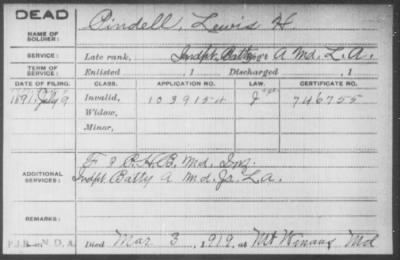 DEAD
NAME OF SOLDIER: Pindell, Lewis H.
SERVICE: Late rank, Indpt. Batty A Md. L.A.
TERM OF SERVICE: Enlisted , 1 Discharged , 1
DATE OF FILING. CLASS. APPLICATION NO. LAW. CERTIFICATE NO.
1891 July 9 Invalid, 1039154 746755
Widow,
Minor,
ADDITIONAL SERVICES: F & P.H.B. Md. Inf.
Indpt. Batty A Md. L.A.
REMARKS:
Died Mar 3, 1919, at Mt Winans Md